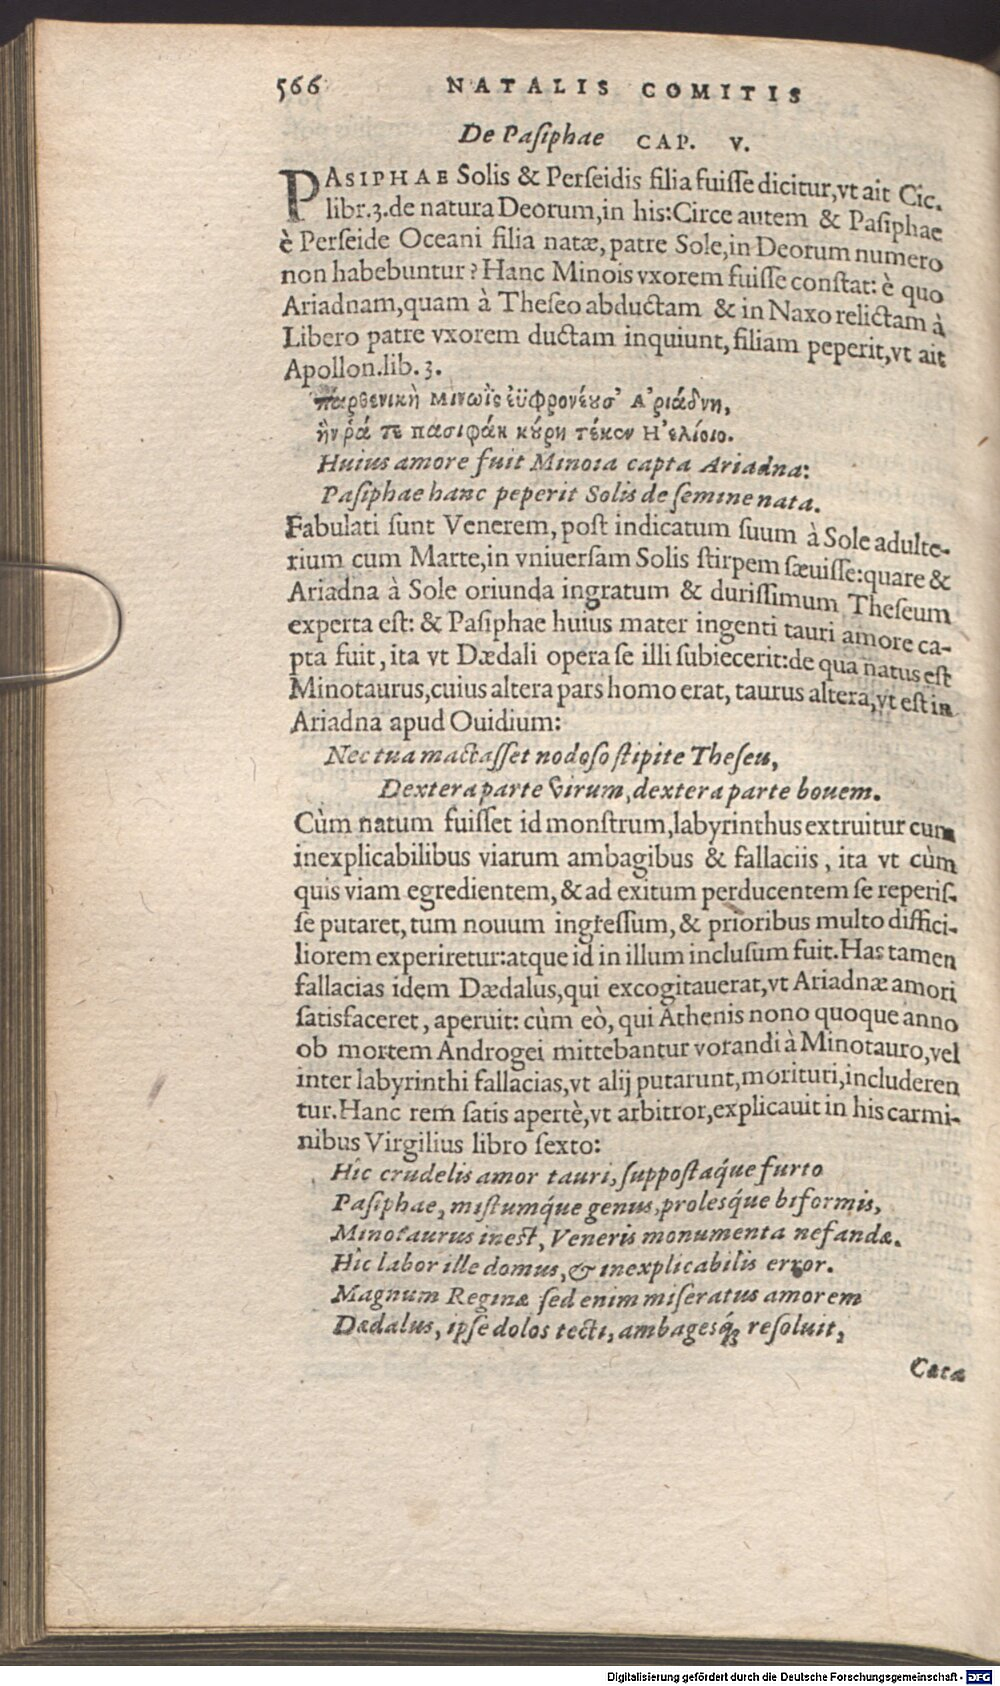 566 NATALIS COMITIS
De Paſiphae CAP. V.
PASIPHAE Solis & Perſeidis filia fuiſſe dicitur,vt ait Cic.
libr.3.de natura Deorum,in his:Circe autem & Paſiphae
è Perſeide Oceani filia natæ,patre Sole,in Deorum numero
non habebuntur? Hanc Minois vxorem fuiſſe conſtat: è quo
Ariadnam,quam à Theſeo abductam & in Naxo relictam à
Libero patre vxorem ductam inquiunt,filiam peperit,vt ait
Apollon.lib.3.
παρθενικὴ Μινωῒς ἐϋφρονέουσ' Α'ριάδνη,
ἥν ῥά τε πασιφάη κούρη τέκεν Η'ελίοιο.
Huius amore fuit Minoia capta Ariadna:
Paſiphae hanc peperit Solis de ſemine nata.
Fabulati ſunt Venerem, poſt indicatum ſuum à Sole adulte-
rium cum Marte,in vniuerſam Solis ſtirpem ſæuiſſe:quare &
Ariadna à Sole oriunda ingratum & duriſſimum Theſeum
experta eſt: & Paſiphae huius mater ingenti tauri amore ca-
pta fuit, ita vt Dædali opera ſe illi ſubiecerit:de qua natus eſt
Minotaurus,cuius altera pars homo erat, taurus altera,vt eſt in
Ariadna apud Ouidium:
Nec tua mactaſſet nodoſo ſtipite Theſeu,
Dextera parte virum,dextera parte bouem.
Cùm natum fuiſſet id monſtrum,labyrinthus extruitur cum
inexplicabilibus viarum ambagibus & fallaciis, ita vt cùm
quis viam egredientem, & ad exitum perducentem ſe reperiſ-
ſe putaret, tum nouum ingreſſum, & prioribus multo diffici-
liorem experiretur:atque id in illum incluſum fuit.Has tamen
fallacias idem Dædalus,qui excogitauerat,vt Ariadnæ amori
ſatisfaceret, aperuit: cùm eò, qui Athenis nono quoque anno
ob mortem Androgei mittebantur vorandi à Minotauro,vel
inter labyrinthi fallacias,vt alij putarunt,morituri,includeren
tur.Hanc rem ſatis apertè,vt arbitror,explicauit in his carmi-
nibus Virgilius libro ſexto:
Hîc crudelis amor tauri, ſuppoſtaq́ue furto
Paſiphae, miſtumq́ue genus,proleſq́ue biformis,
Minotaurus ineſt, Veneris monumenta nefandæ.
Hîc labor ille domus, & inexplicabilis error.
Magnum Reginæ ſed enim miſeratus amorem
Dædalus, ipſe dolos tecti, ambagesq́; reſoluit,
Cæca
Digitalisierung gefördert durch die Deutsche Forschungsgemeinschaft - DFG